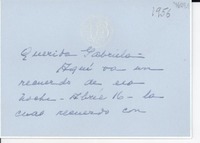 1956
Querida Gabriela =
Aquí va un
recuerdo de esa
noche - Abril 16 - la
cual recuerdo con